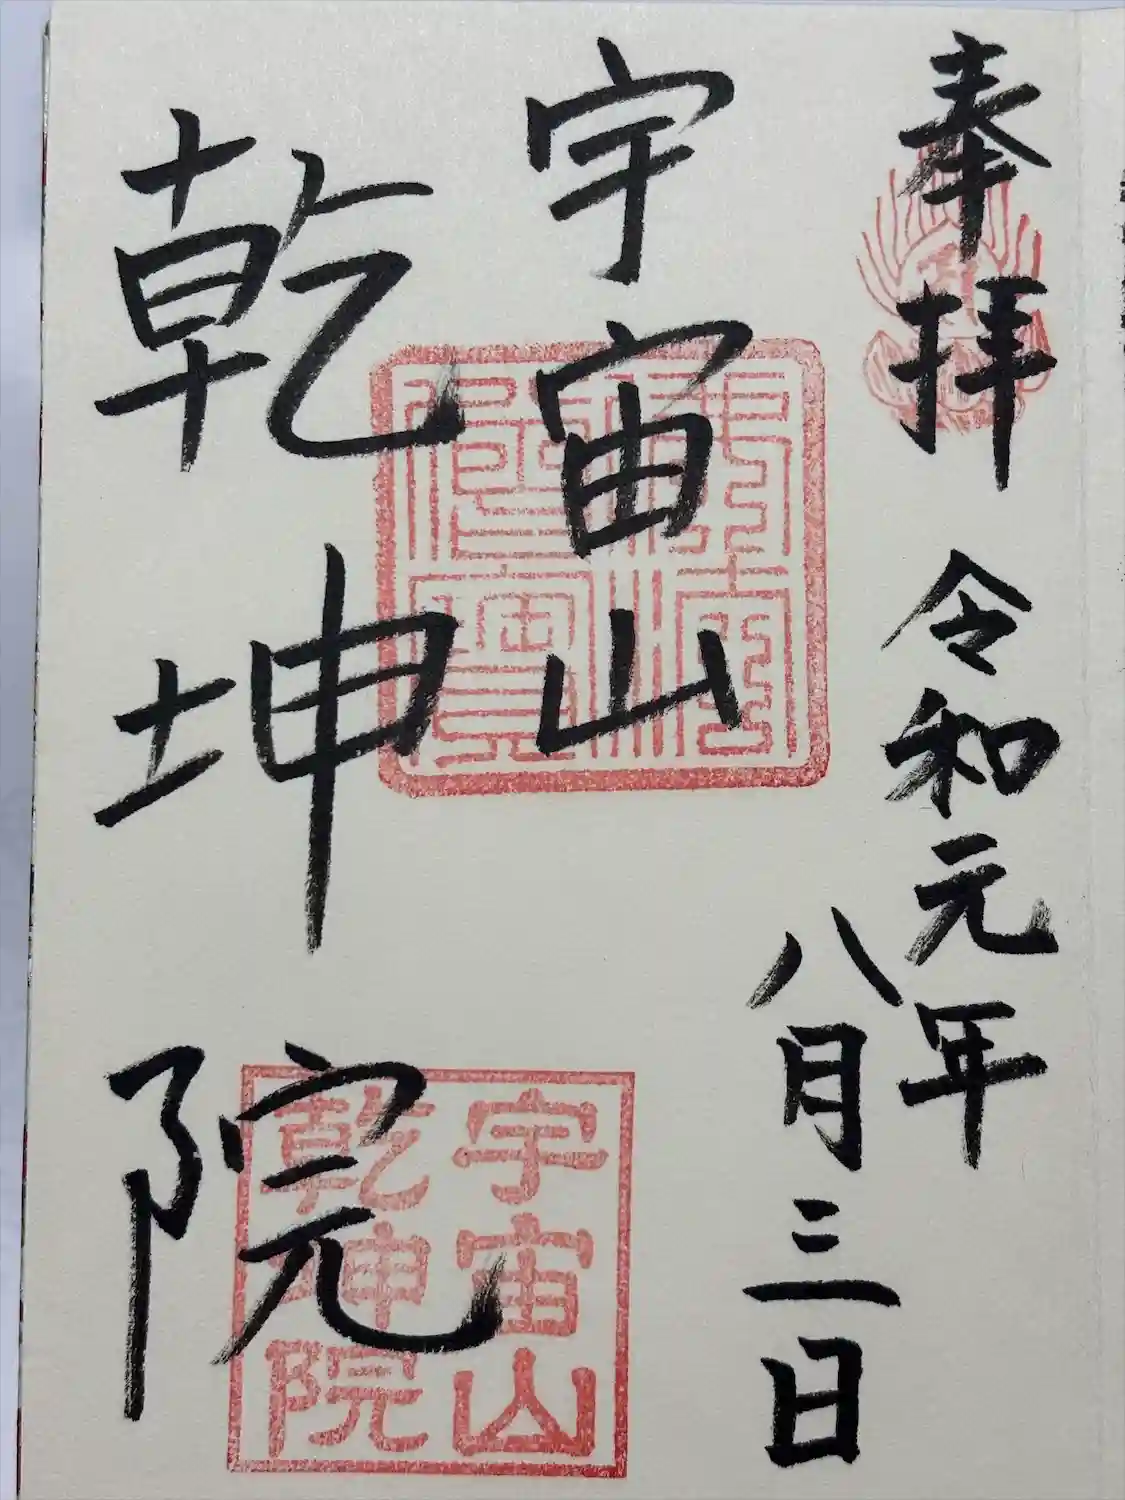 奉拝
令和元年
八月三日
宇宙山
乾坤院
宇宙山
乾坤院